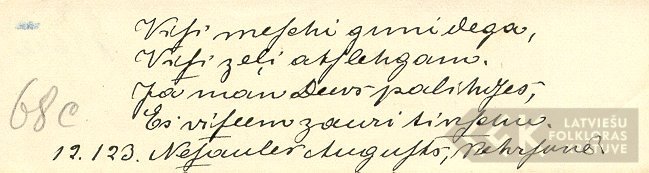 Visi meschi guni dega,
Visi zeļi atslehgam.
Ja man Dews palihdses,
Es viseem zauri tinschu.
68c
12.123. Nesaules Augusts, Vehrsone.
LATVIEŠU
FOLKLORAS
KRĀTUVE